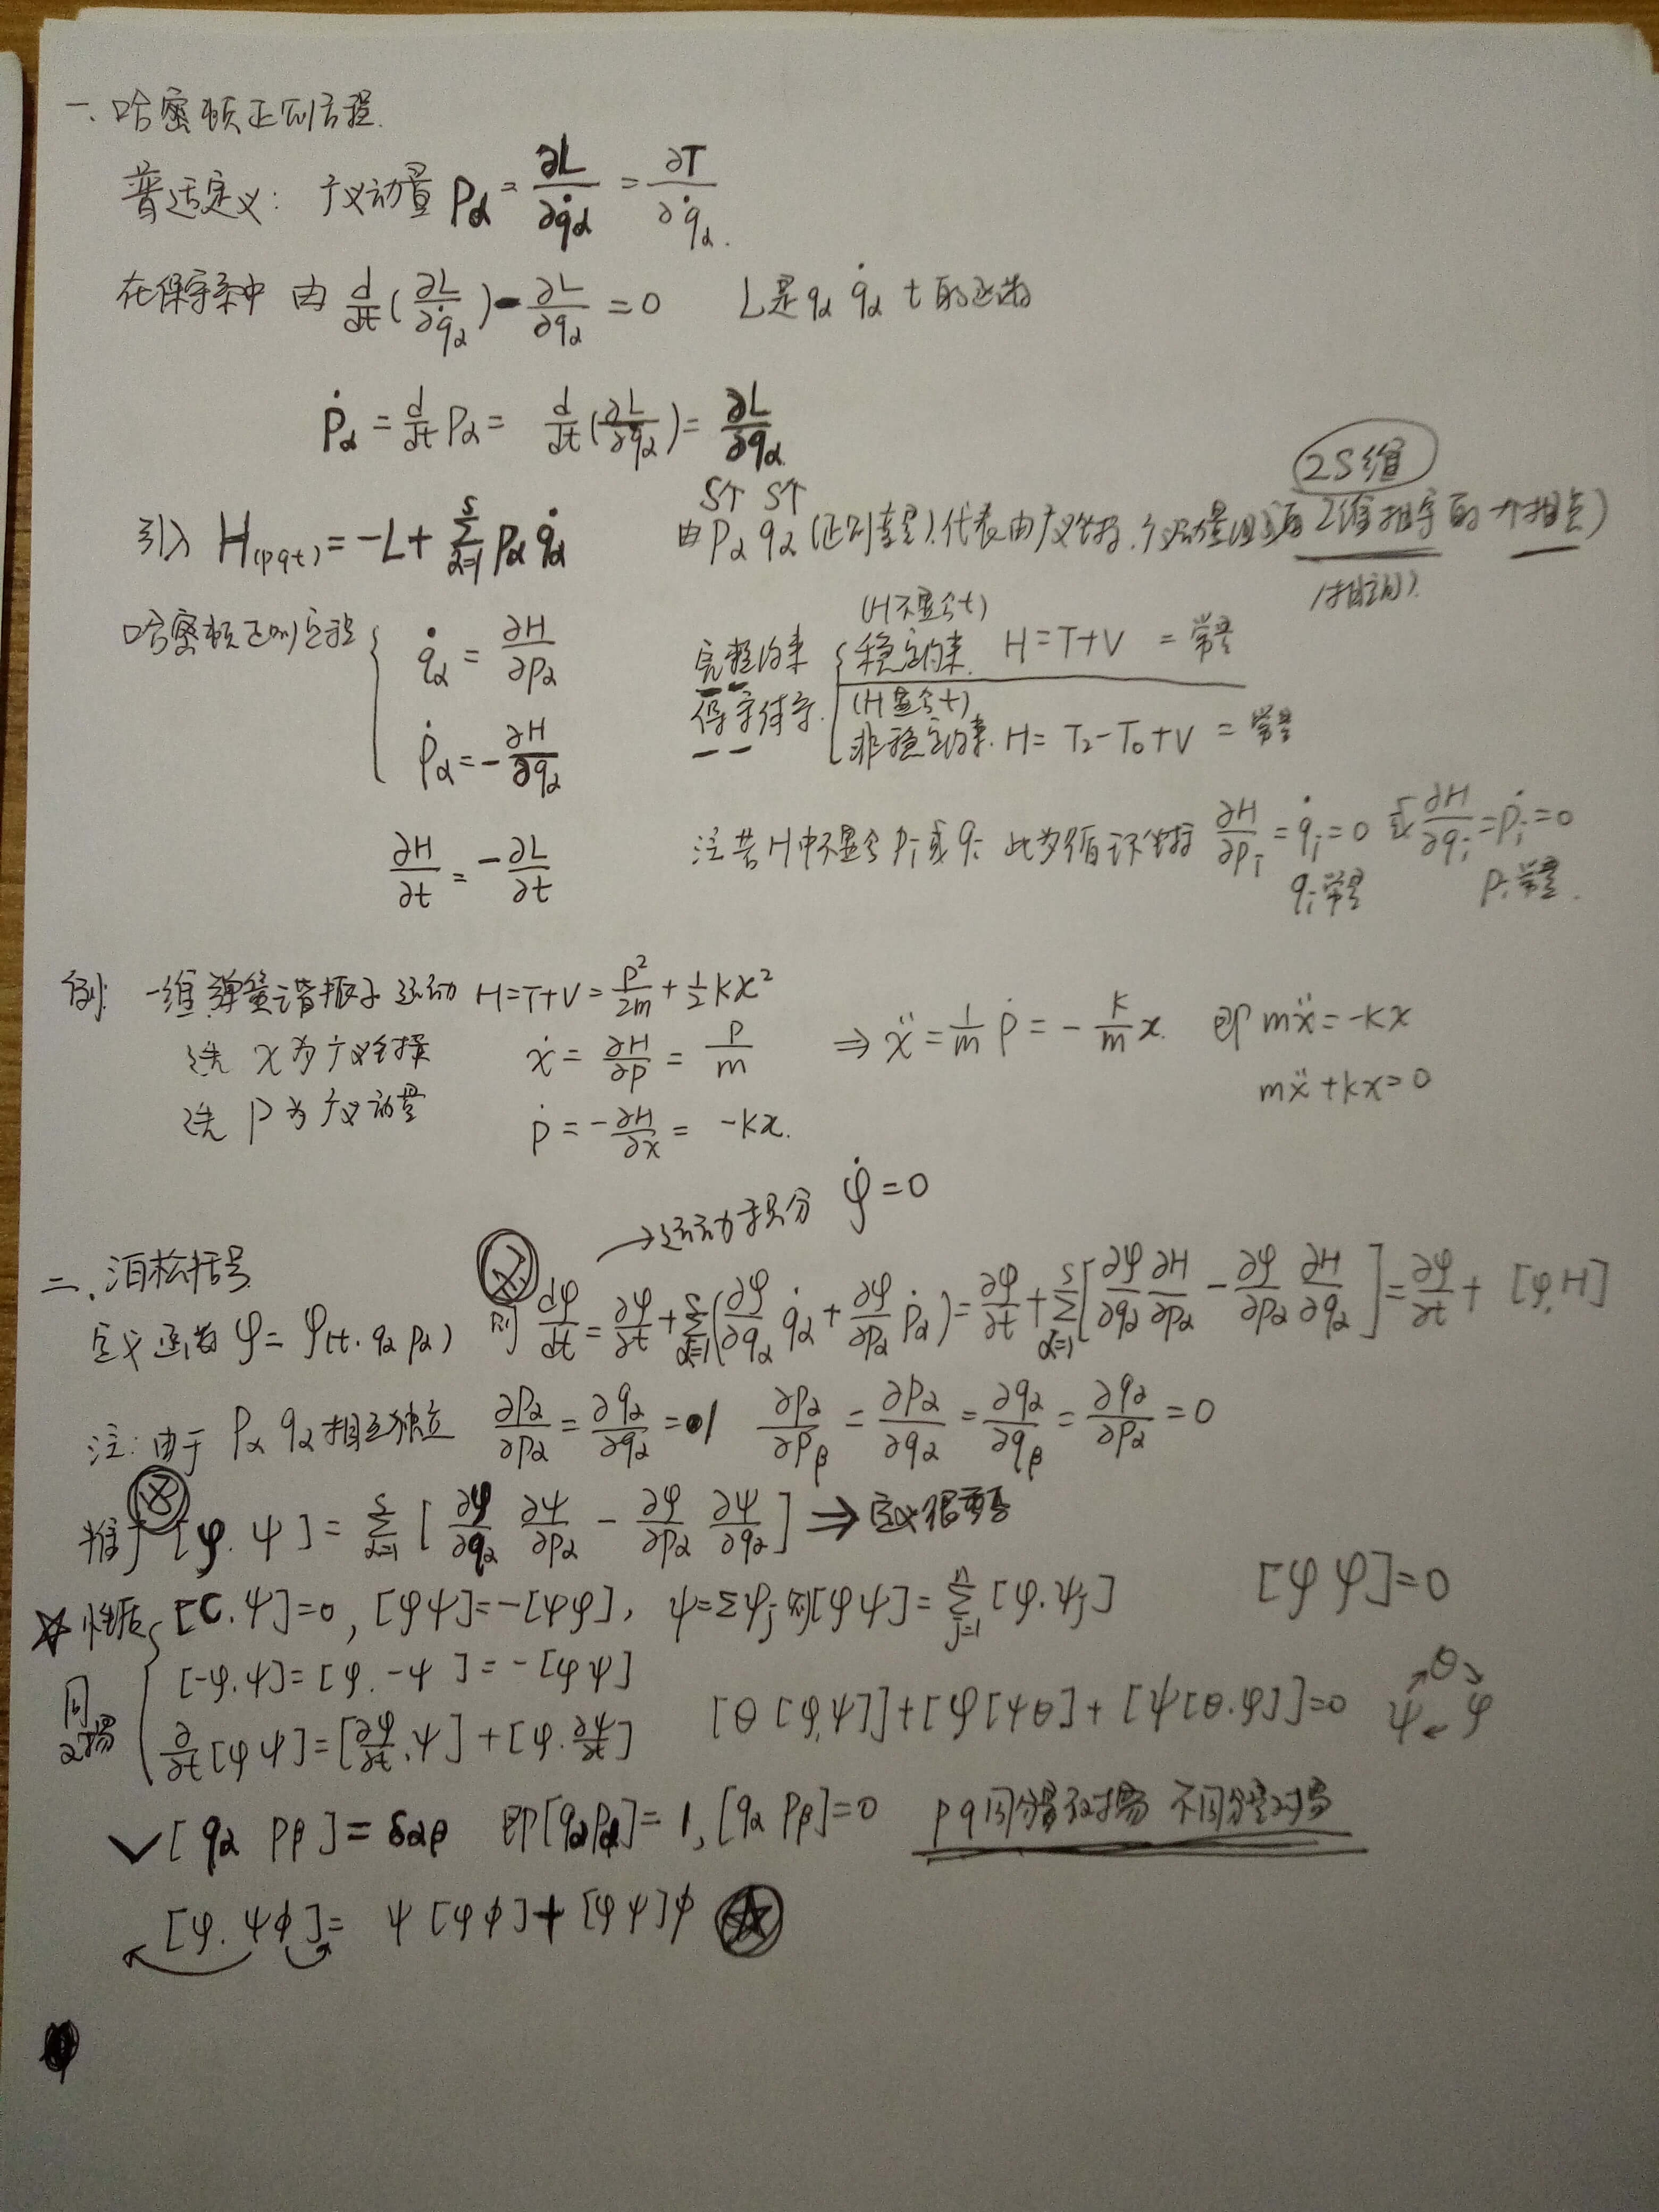 一、哈密顿正则方程.
普适定义: 广义动量 pα = ∂L/∂q̇α = ∂T/∂q̇α.
在保守系中 由 d/dt(∂L/∂q̇α) - ∂L/∂qα = 0 L是 qα q̇α t 的函数
ṗα = d/dt pα = d/dt(∂L/∂q̇α) = ∂L/∂qα
2S维
S个 S个
引入 H(pqt) = -L + Σ(α=1→S) pα q̇α 由 pα qα (正则变量).代表由广义坐标.广义动量组成的2维相宇的一个相点)
(相空间).
哈密顿正则方程 { q̇α = ∂H/∂pα
ṗα = -∂H/∂qα
完整约束 保守体系. { (H不显含t) 稳定约束. H=T+V = 常量
(H显含t) 非稳定约束. H= T₂-T₀+V = 常量
∂H/∂t = -∂L/∂t
注 若H中不显含 pi 或 qi 此为循环坐标 ∂H/∂pi = q̇i = 0 或 ∂H/∂qi = ṗi = 0
qi 常量 pi 常量.
例: 一维弹簧谐振子运动 H=T+V= p²/2m + ½kx²
选 x 为广义坐标 ẋ = ∂H/∂p = p/m ⇒ ẍ = 1/m ṗ = - k/m x. 即 mẍ = -kx
选 p 为广义动量 ṗ = -∂H/∂x = -kx. mẍ + kx = 0
→运动积分 φ̇ = 0
二、泊松括号.
定义函数 φ = φ(t. qα pα) 则 dφ/dt = ∂φ/∂t + Σ(α=1→S)(∂φ/∂qα q̇α + ∂φ/∂pα ṗα) = ∂φ/∂t + Σ(α=1→S)[∂φ/∂qα ∂H/∂pα - ∂φ/∂pα ∂H/∂qα] = ∂φ/∂t + [φ,H]
注: 由于 pα qα 相互独立 ∂pα/∂pα = ∂qα/∂qα = 1 ∂pα/∂pβ = ∂pα/∂qα = ∂qα/∂qβ = ∂qα/∂pα = 0
推广 [φ. ψ] = Σ(α=1→S) [∂φ/∂qα ∂ψ/∂pα - ∂φ/∂pα ∂ψ/∂qα] ⇒ 定义很重要
☆性质 { [C.ψ]=0, [φψ]=-[ψφ], ψ=Σψj 则[φψ]=Σ(j=1→n) [φ.ψj] [φ φ]=0
[-φ.ψ]=[φ.-ψ]=-[φψ]
∂/∂t[φψ]=[∂φ/∂t.ψ]+[φ.∂ψ/∂t] [θ[φ,ψ]]+[φ[ψθ]]+[ψ[θ.φ]]=0 θ ψ φ
✓[qα pβ]=δαβ 即[qαpα]=1, [qα pβ]=0 p q 同分量不对易 不同分量对易
[φ. ψϕ]= ψ[φϕ]+[φψ]ϕ ☆